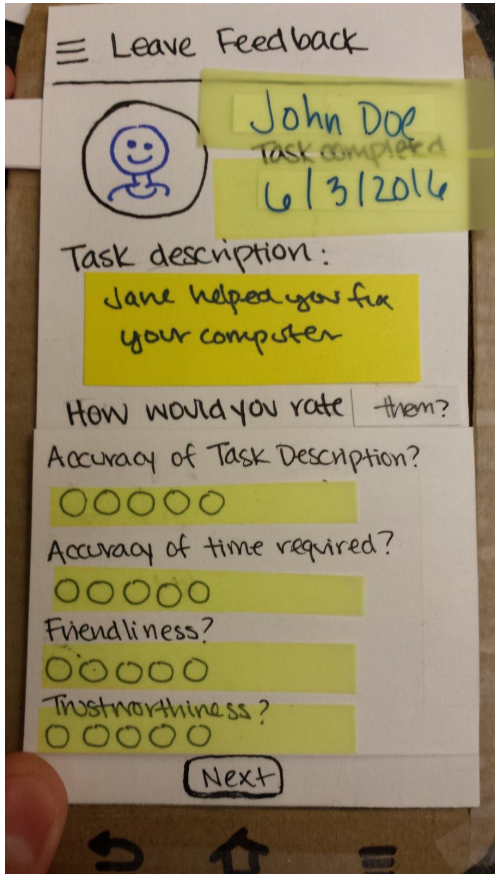 Leave Feedback
John Doe
Task completed
6/3/2016
Task description:
Jane helped you fix
your computer
How would you rate them?
Accuracy of Task Description?
Accuracy of time required?
Friendliness?
Trustworthiness?
Next